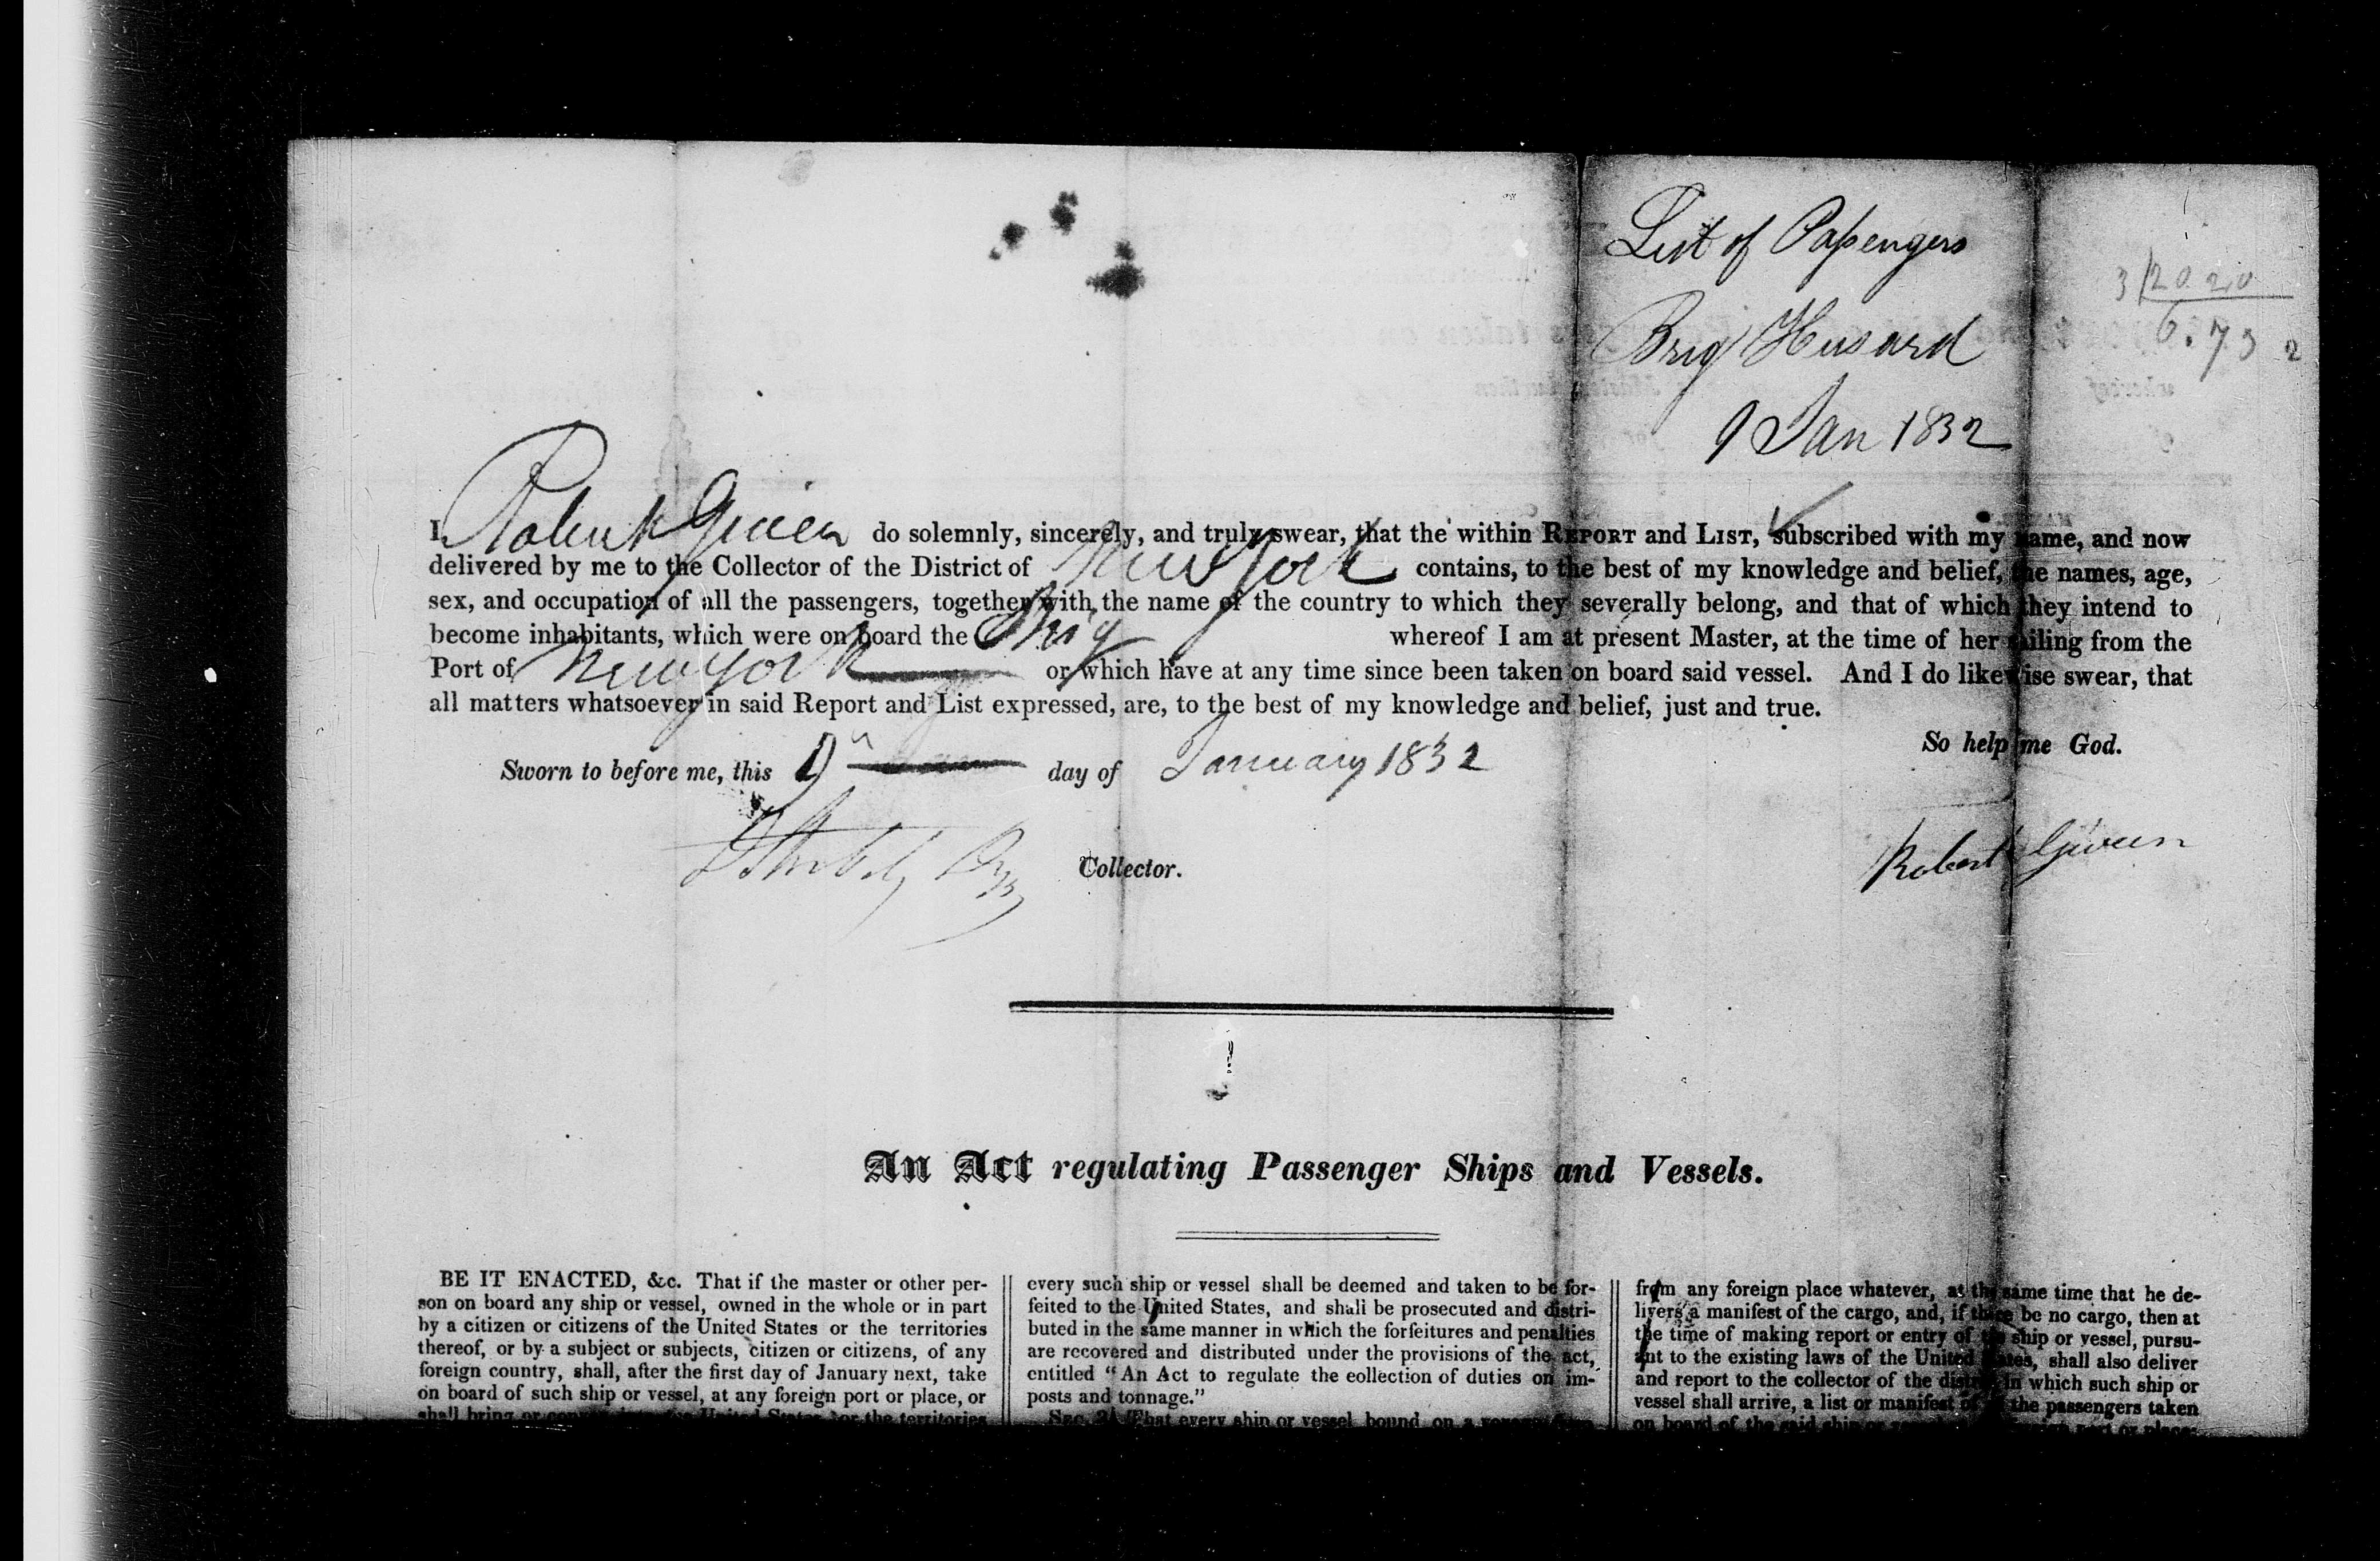 List of Passengers
Brig Husard
9 Jan 1832
3 | 20.20
6.73 2
I Robert Given do solemnly, sincerely, and truly swear, that the within REPORT and LIST, subscribed with my name, and now
delivered by me to the Collector of the District of New York contains, to the best of my knowledge and belief, the names, age,
sex, and occupation of all the passengers, together with the name of the country to which they severally belong, and that of which they intend to
become inhabitants, which were on board the Brig whereof I am at present Master, at the time of her sailing from the
Port of New York or which have at any time since been taken on board said vessel. And I do likewise swear, that
all matters whatsoever in said Report and List expressed, are, to the best of my knowledge and belief, just and true.
So help me God.
Sworn to before me, this 9 day of January 1832
Robert Given
Collector.
An Act regulating Passenger Ships and Vessels.
BE IT ENACTED, &c. That if the master or other per-
son on board any ship or vessel, owned in the whole or in part
by a citizen or citizens of the United States or the territories
thereof, or by a subject or subjects, citizen or citizens, of any
foreign country, shall, after the first day of January next, take
on board of such ship or vessel, at any foreign port or place, or
shall bring or United States or the territories
every such ship or vessel shall be deemed and taken to be for-
feited to the United States, and shall be prosecuted and distri-
buted in the same manner in which the forfeitures and penalties
are recovered and distributed under the provisions of the act,
entitled "An Act to regulate the eollection of duties on im-
posts and tonnage."
SEC. 2. That every ship or vessel bound on a
from any foreign place whatever, at the same time that he de-
livers a manifest of the cargo, and, if there be no cargo, then at
the time of making report or entry of the ship or vessel, pursu-
ant to the existing laws of the United States, shall also deliver
and report to the collector of the district in which such ship or
vessel shall arrive, a list or manifest of the passengers taken
on board of the said ship or port or place;